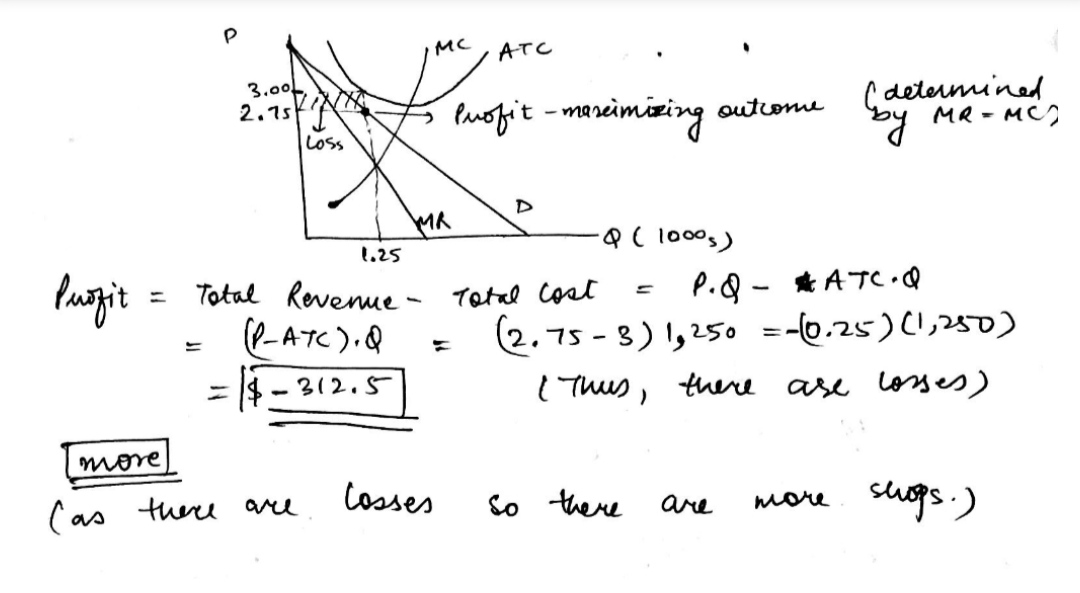 P
MC
ATC
3.00
2.75
Loss
Profit - maximizing outcome (determined by MR = MC)
MR
D
Q (1000s)
1.25
Profit = Total Revenue - Total Cost = P.Q - ATC.Q
= (P-ATC).Q = (2.75-3) 1,250 = -(0.25)(1,250)
= $ - 312.5 (Thus, there are losses)
more
(as there are losses so there are more shops.)